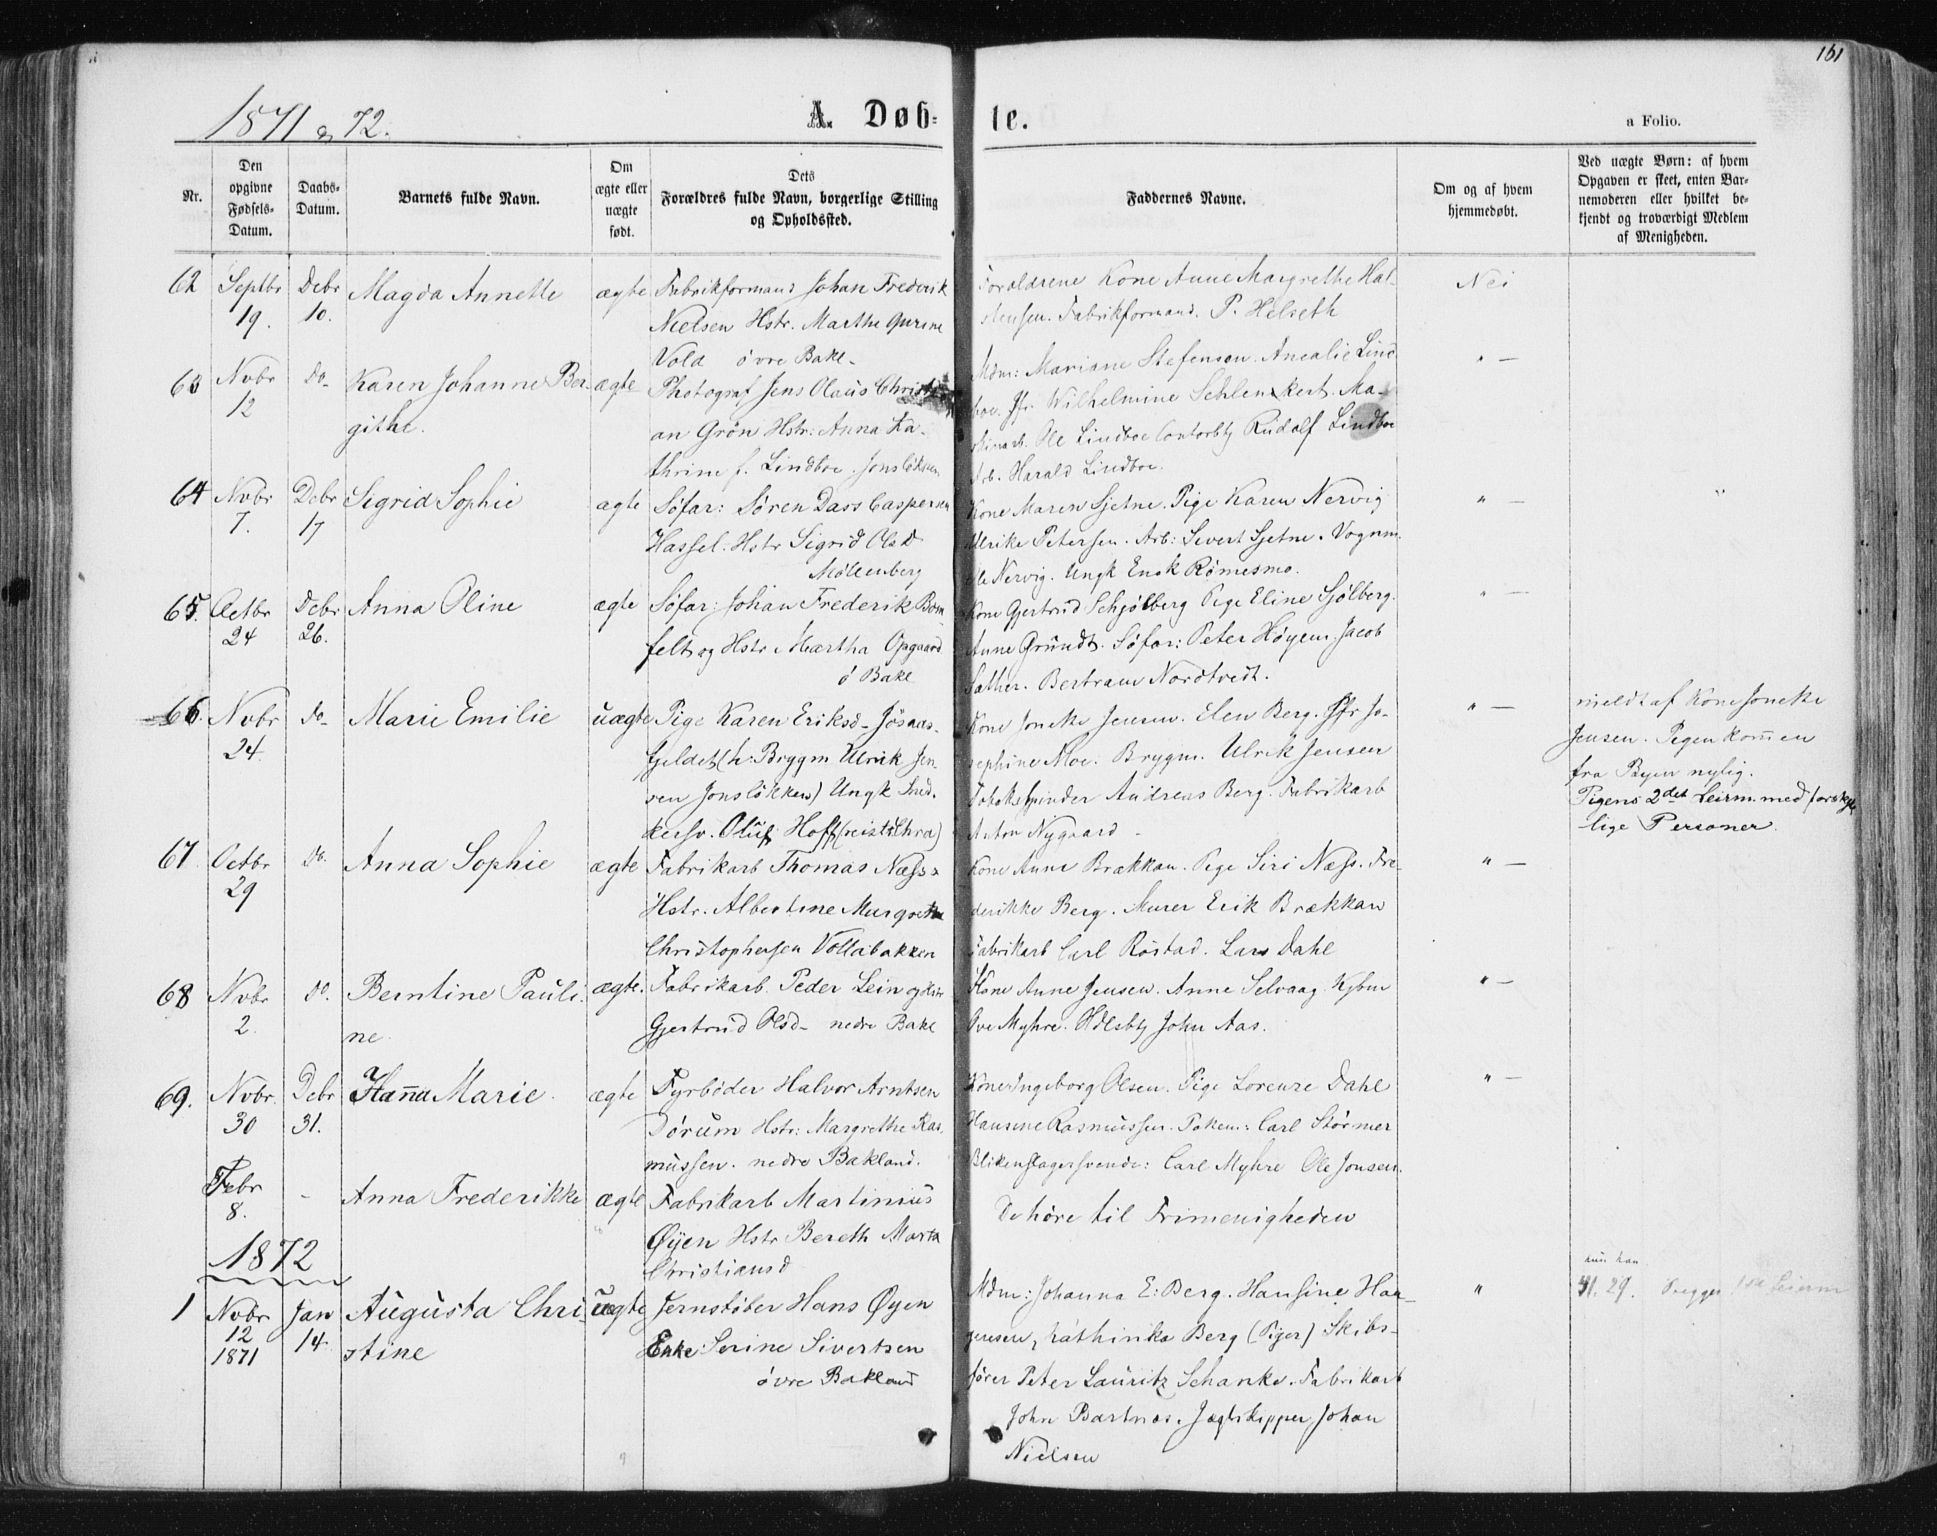 161
1871 & 72.
A. Døb-
te.
a Folio.
Nr.
Den opgivne Fødsels-Datum.
Daabs-Datum.
Barnets fulde Navn.
Om ægte eller uægte født.
Dets Forældres fulde Navn, borgerlige Stilling og Opholdssted.
Faddernes Navne.
Om og af hvem hjemmedøbt.
Ved uægte Børn: af hvem Opgaven er skeet, enten Barnemoderen eller hvilket bekjendt og troværdigt Medlem af Menigheden.
62 Septbr 19. Debr 10. Magda Annette ægte
Fabrikformand Johan Frederik
Nielsen Hstr. Marthe Gurine
Vold øvre Bakl-
Forældrene Kone Anne Margrethe Hal-
stensen. Fabrikformand. P. Helseth
Nei
63 Novbr 12 do- Karen Johanne Ber-
githe. ægte
Photograf Jens Olaus Christi-
an Grön Hstr: Anna Ka-
thrine f. Lindboe. Jonsløkken
Mdm: Mariane Stefensen. Amalie Lind-
boe. Jfr. Wilhelmine Schlenkert. Ma-
skinarb. Ole Lindboe Contorbtj Rudolf Lindboe
Arb. Harald Lindboe.
" —
64 Novbr 7. Debr 17 Sigrid Sophie ægte
Søfar: Sören Dass Caspersen
Hassel: Hstr Sigrid Olsd
Möllenberg
Kone Maren Sjetne. Pige Karen Nervig
Ulrike Petersen. Arb: Sivert Sjetne. Vognm.
Ole Nervig. Ungk Enok Römesmo.
" —
65. Octbr 24 Debr 26. Anna Oline ægte
Søfar: Johan Frederik Bom
felt og Hstr Martha Opgaard
ö Bakl
Kone Gjertrud Schjölberg Pige Eline Sjölberg.
Anne Grundt. Söfar: Peter Höyem. Jacob
Sæther. Bertram Nordtvedt.
" —
66. Novbr 24. do- Marie Emilie uægte
Pige Karen Eriksd- Jösaas-
fjeldet (h: Brygm Ulrik Jen-
sen Jonsløkken) Ungk Smed-
desv. Oluf Hoff (reist t Chra)
Kone Joneke Jensen. Elen Berg. Jfr Jo-
sephine Moe. Brygm. Ulrik Jensen
Tobakspinder Andreas Berg. Fabrikarb
Anton Nygaard -
" —
meldt af Kone Joneke
Jensen. Pigen kommen
fra Byen nylig.
Pigens 2det Leirm. med forskjel-
lige Personer.
67 Octbr 29 do. Anna Sophie ægte
Fabrikarb Thomas Næss
Hstr. Albertine Margrethe
Christophersen Vollabakken
Kone Anne Brækkan. Pige Siri Næss. Fre-
derikke Berg. Murer Erik Brækkan
Fabrikarb Carl Röstad. Lars Dahl
" —
68 Novbr 2. do. Berntine Pauli-
ne ægte.
Fabrikarb. Peder Lein og Hstr
Gjertrud Olsd- nedre Bakl
Kone Anne Jensen. Anne Selvaag. Kjbm
Ove Myhre. Hdlsbtj John Aas.
" —
69. Novbr. 30 Debr 31. Hanna Marie. ægte
Fyrböder Halvor Arntsen
Dörum Hstr: Margrethe Ras-
mussen. nedre Bakland.
Kone Ingeborg Olsen. Pige Lorenze Dahl
Hansine Rasmussen. Pakem: Carl Störmer
Blikenslagersvende: Carl Myhre Ole Jonsen.
" —
Febr 8. - Anna Frederikke ægte
Fabrikarb Martinius
Øyen Hstr Bereth Marta
Christiansd
De höre til Frimenigheden
1872
1 Novbr 12 1871 Jan 14. Augusta Chri-
stine uægte
Jernstöber Hans Øyen
Enke Serine Sivertsen
övre Bakland
Mdm: Johanna E: Berg. Hansine Han-
gensen, Kathinka Berg (Piger) Skibs-
förer Peter Lauritz Schanke. Fabrikarb
John Bartnæs. Jægtskipper Johan
Nielsen
"
31. 29. Begges 1ste Leierm